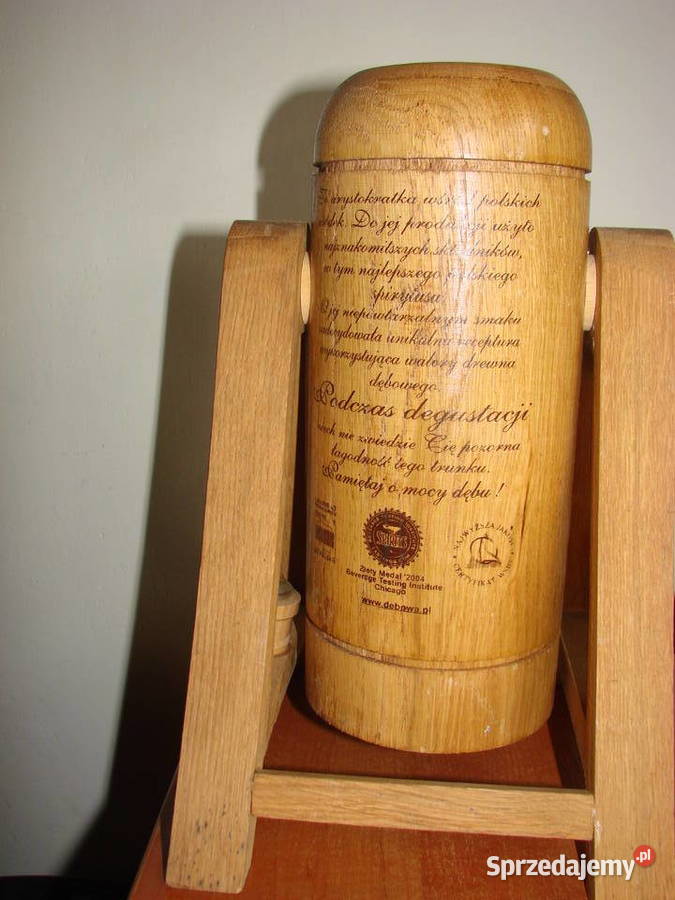 arystokratka wśród polskich
Do jej produkcji użyto
najznakomitszych składników,
w tym najlepszego polskiego
spirytusu.
O jej niepowtarzalnym smaku
zadecydowała unikalna receptura
wykorzystująca walory drewna
dębowego.
Podczas degustacji
niech nie zwiedzie Cię pozorna
łagodność tego trunku.
Pamiętaj o mocy dębu !
SPIRITS
Złoty Medal '2004
Beverage Testing Institute
Chicago
www.debowa.pl
NAJWYŻSZA JAKOŚĆ
CERTYFIKAT
Sprzedajemy.pl